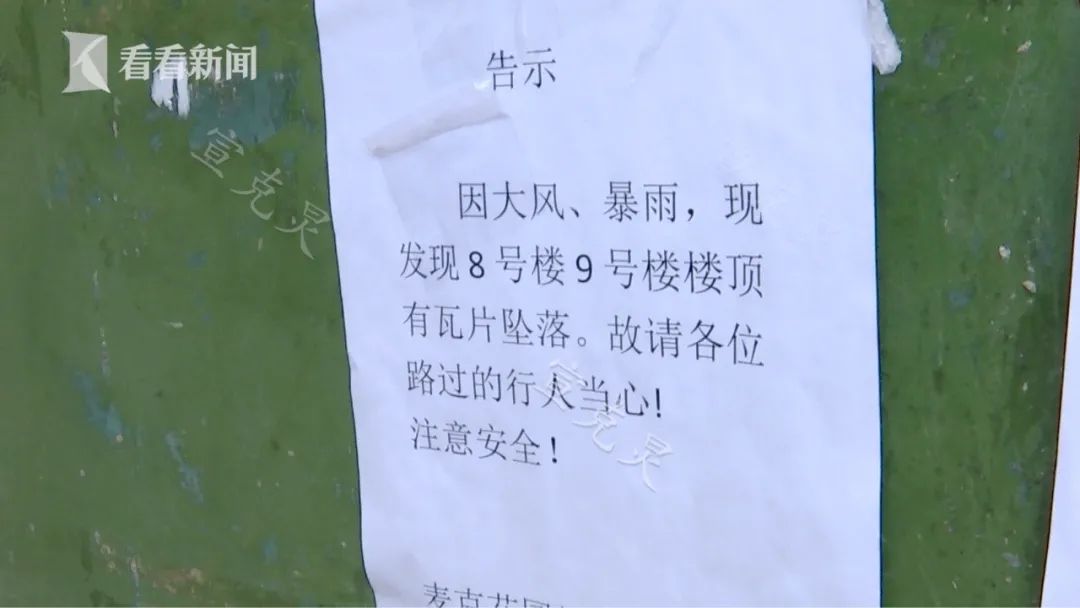 看看新闻
告示
宣克炅
因大风、暴雨，现
发现8号楼9号楼楼顶
有瓦片坠落。故请各位
路过的行人当心!
宣克炅
注意安全!
麦克花园